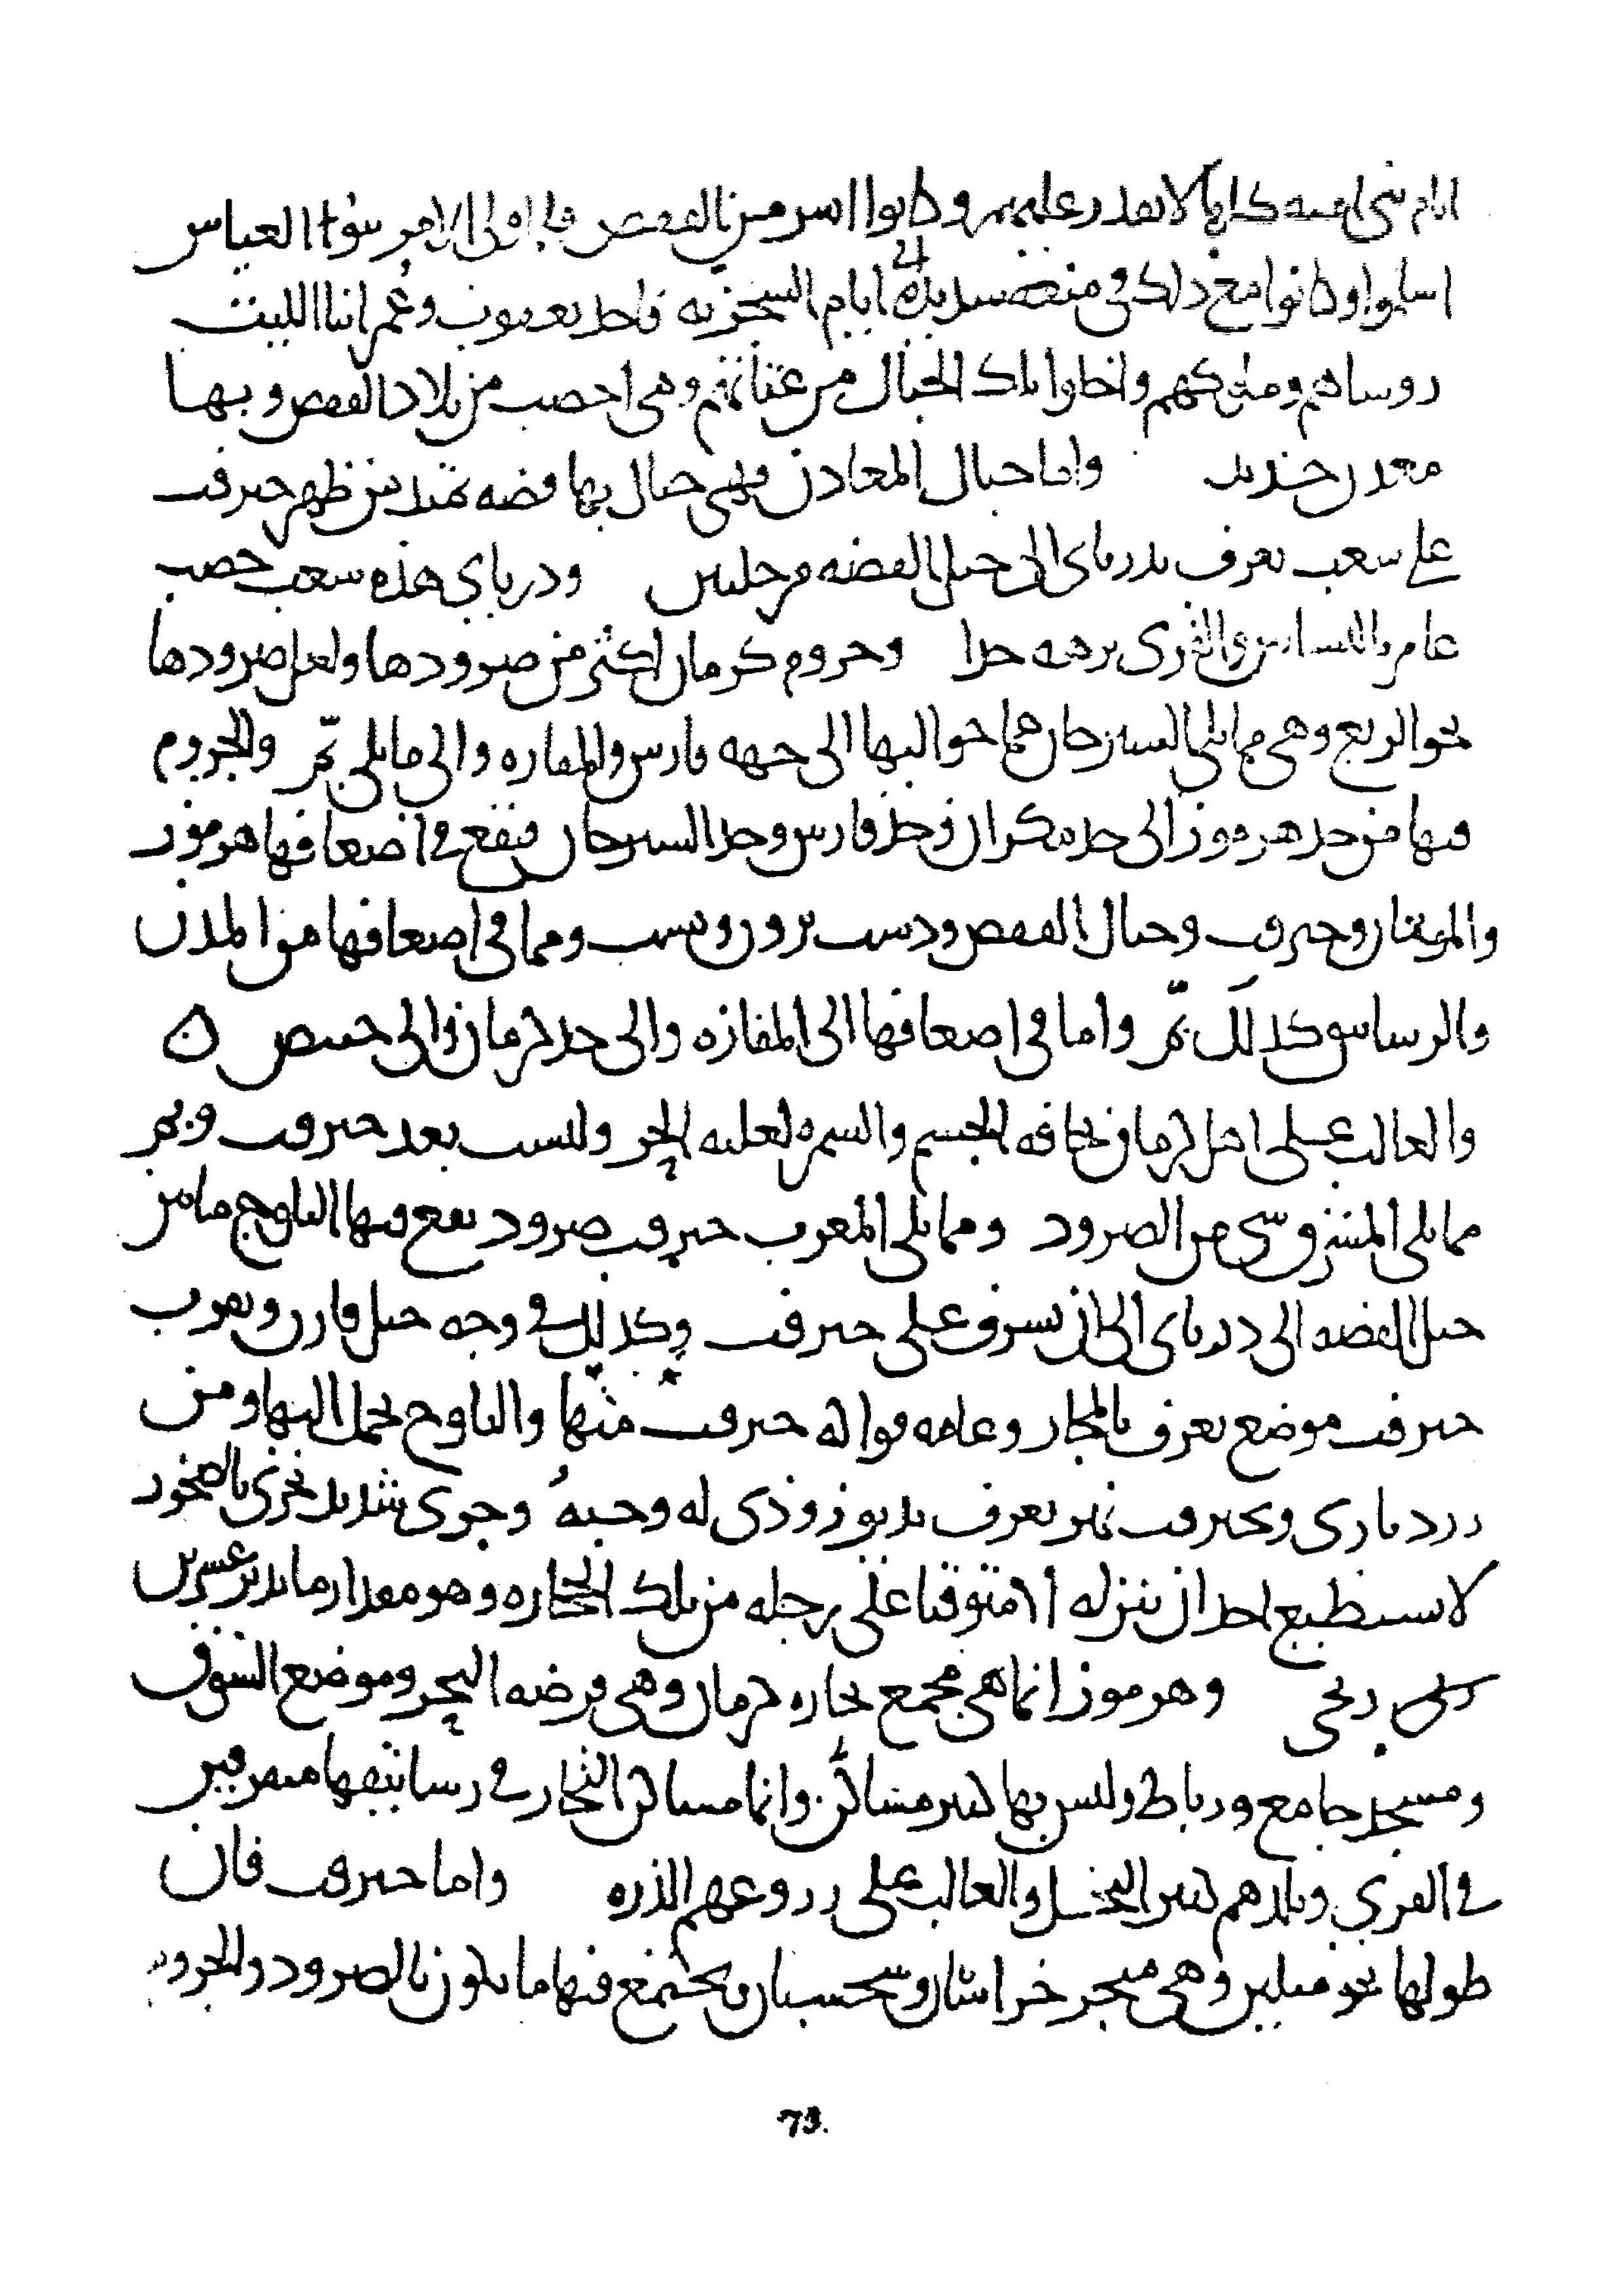 ايام بني اميه كلها لا يقدر عليهم وكانوا اشر من القفص فلما ولي الامر بنوا العباس
اسلموا وكانوا مع ذلك في منعه شديده ايام السجزيه فاخذ يعقوب وعمر ابنا الليث
روساهم وملوكهم واخلوا تلك الجبال من عتاتهم وهي اخصب من بلاد القفص وبها
معدن حديد واما جبال المعادن فهي جبال بها فضه تمتد من ظهر جيرفت
على شعب يعرف بدرباي الى جبل الفضه مرحلتين ودرباي هذه شعب خصب
عامر بالبساتين والقرى نزهه جدا وجروم كرمان اكثر من صرودها ولعل صرودها
نحو الربع وهي مما يلي السيرجان مما حواليها الى جهه فارس والمفازه والى ما يلي بم والجروم
فيها من حد هرموز الى حد مكران وحد فارس وحد السيرجان فيقع في اضعافها هرموز
والمنوقان وجيرفت وجبال القفص ودشت بر وروبست ومما في اضعافها من المدن
والرساتيق وكذلك بم واما في اضعافها الى المفازه والى حد كرمان والى خبيص ن
والغالب على اهل كرمان نحافه الجسم والسمره لغلبه الحر وليست بعد جيرفت وبم
مما يلي المشرق شي من الصرود ومما يلي المغرب جيرفت صرود يقع فيها الثلوج ما بين
جبل الفضه الى درباي الى ان يشرف على جيرفت وكذلك في وجه جبل قارن وبقرب
جيرفت موضع يعرف بالميجان وعامه فواكه جيرفت منها والثلوج تحمل اليها ومن
درباري وبجيرفت نهر يعرف بديوروذ ذي له وجبه وجري شديد يجري بالصخور
لا يستطيع احد ان ينزله الا متوقيا على رجله من تلك الحجاره وهو مقدار ما يدير عشرين
رحى وهرموز انما هي مجمع تجاره كرمان وهي فرضه البحر وموضع السوق
ومسجد جامع ورباط وليس بها كثير مساكن وانما مساكن التجار في رساتيقها متفرقين
في القرى وبلدهم كثير النخل والغالب على زروعهم الذره واما جيرفت فان
طولها نحو ميلين وهي متجر خراسان وسجستان ويجتمع فيها ما يكون بالصرود والجروم
73.